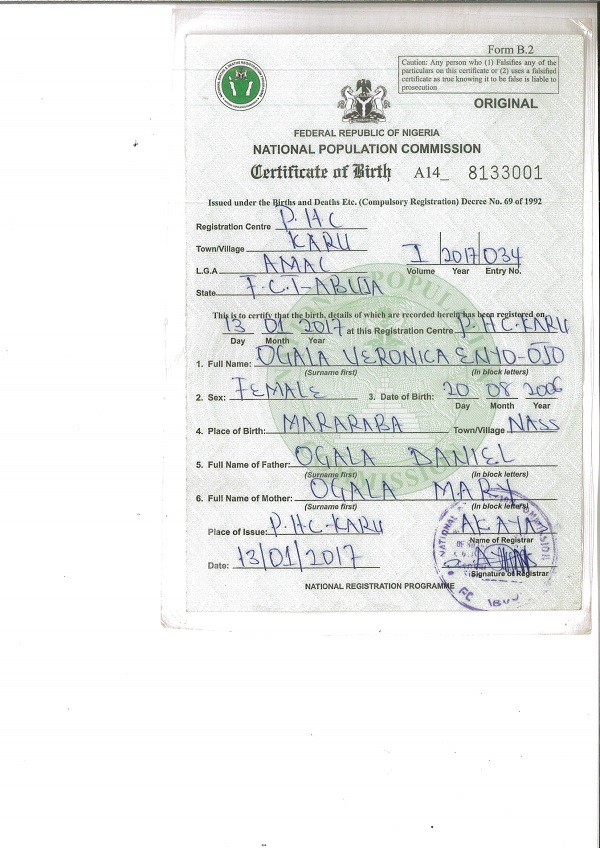 Form B.2
Caution: Any person who (1) Falsifies any of the
particulars on this certificate or (2) uses a falsified
certificate as true knowing it to be false is liable to
prosecution
ORIGINAL
FEDERAL REPUBLIC OF NIGERIA
NATIONAL POPULATION COMMISSION
Certificate of Birth A14_ 8133001
Issued under the Births and Deaths Etc. (Compulsory Registration) Decree No. 69 of 1992
Registration Centre P.H.C
Town/Village KARU
L.G.A AMAC
I 2017 034
Volume Year Entry No.
State F.C.T-ABUJA
This is to certify that the birth, details of which are recorded herein has been registered on
13 01 2017 at this Registration Centre P.H.C-KARU
Day Month Year
1. Full Name: OGALA VERONICA ENYO-OJO
(Surname first) (In block letters)
2. Sex: FEMALE 3. Date of Birth: 20 08 2006
Day Month Year
4. Place of Birth: MARARABA Town/Village NASS
5. Full Name of Father: OGALA DANIEL
(Surname first) (In block letters)
6. Full Name of Mother: OGALA MARY
(Surname first) (In block letters)
Place of Issue: P.H.C-KARU AKAYA
Name of Registrar
Date: 13/01/2017
Signature of Registrar
NATIONAL REGISTRATION PROGRAMME